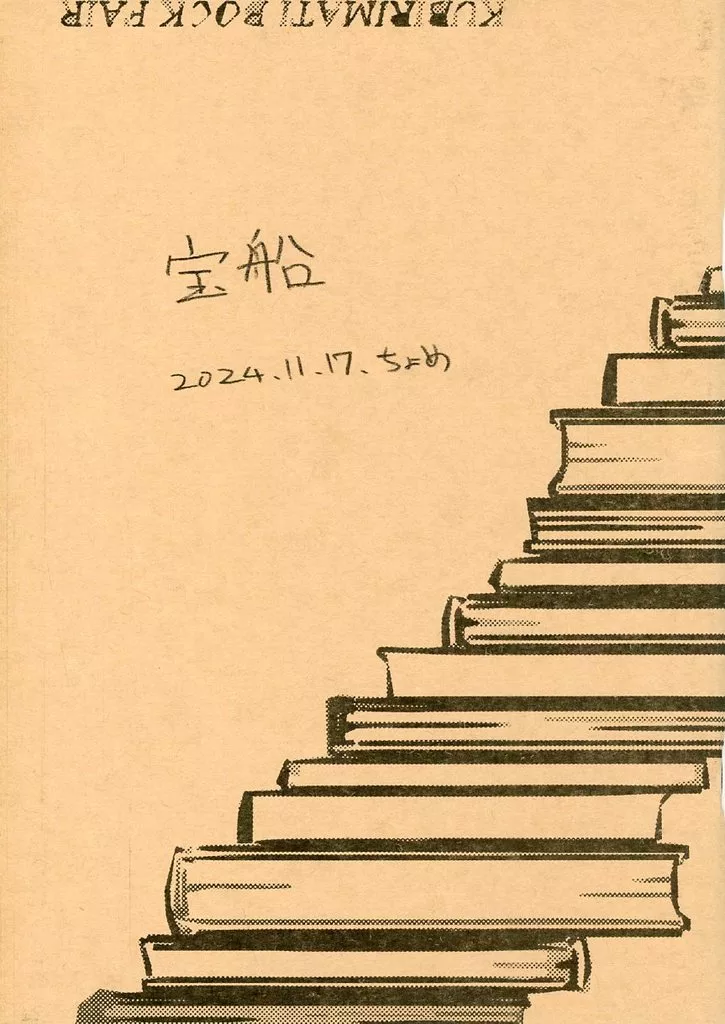 BOOK FAIR
宝船
2024.11.17.ちょめ